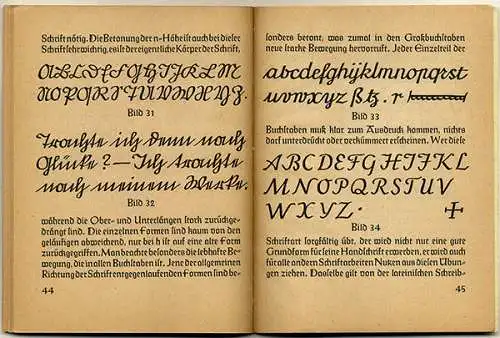 Schrift nötig. Die Betonung der n-Höhe ist auch bei dieser
Schrift sehr wichtig, es ist der eigentliche Körper der Schrift,
A B C D E F G H I J K L M
N O P Q R S T U V W X Y Z.
Bild 31
Trachte ich denn nach
Glücke? – Ich trachte
nach meinem Werke.
Bild 32
während die Ober- und Unterlängen stark zurückge-
drängt sind. Die einzelnen Formen sind kaum von den
geläufigen abweichend, nur bei h ist auf eine alte Form
zurückgegriffen. Man beachte besonders die lebhafte Be-
wegung, die in allen Buchstaben ist. Jene der allgemeinen
Richtung der Schrift entgegenlaufenden Formen sind be-
44
sonders betont, was zumal in den Großbuchstaben
neue starke Bewegung hervorruft. Jeder Einzelteil der
abcdefghijklmnopqrst
uvwxyz ß tz . r
Bild 33
Buchstaben muß klar zum Ausdruck kommen, nichts
darf unterdrückt oder verkümmert erscheinen. Wer diese
A B C D E F G H I J K L
M N O P Q R S T U V
W X Y Z .
Bild 34
Schriftart sorgfältig übt, der wird nicht nur eine gute
Grundform für seine Handschrift erwerben, er wird auch
für alle andern Schriftarbeiten Nutzen aus diesen Übun-
gen ziehen. Dasselbe gilt von der lateinischen Schreib-
45